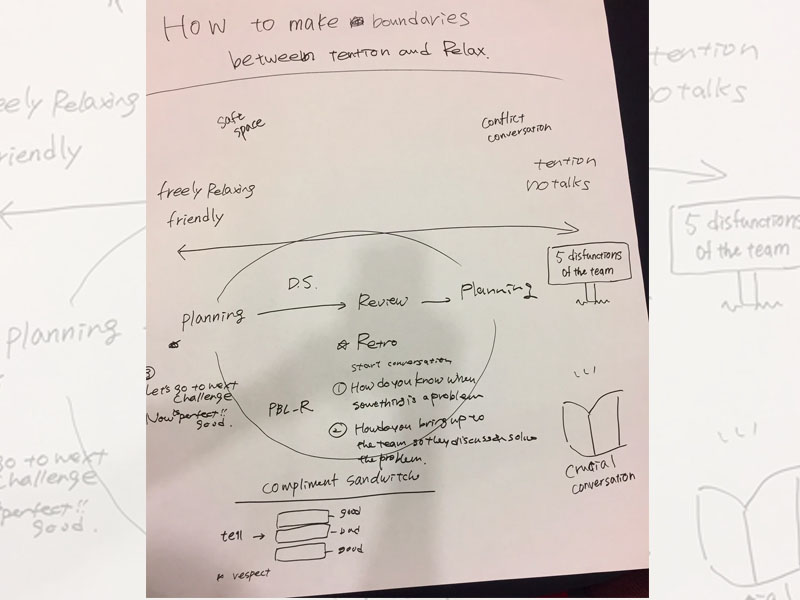 How to make boundaries
between tention and Relax.
safe
space
conflict
conversation
tention
No talks
freely Relaxing
friendly
5 disfunctions
of the team
D.S.
planning
Review
planning
Retro
start conversation
① How do you know when
something is a problem
② How do you bring up to
the team so they discuss n solve
the problem.
③
Let's go to next
challenge
Now is perfect!!
good.
PBL_R
crucial
conversation
compliment sandwitch
tell
good
bad
good
* respect
eely Relaxing
riendly
planning
go to next
challenge
perfect!!
good.
tention
No talks
5 disfunctions
of the team